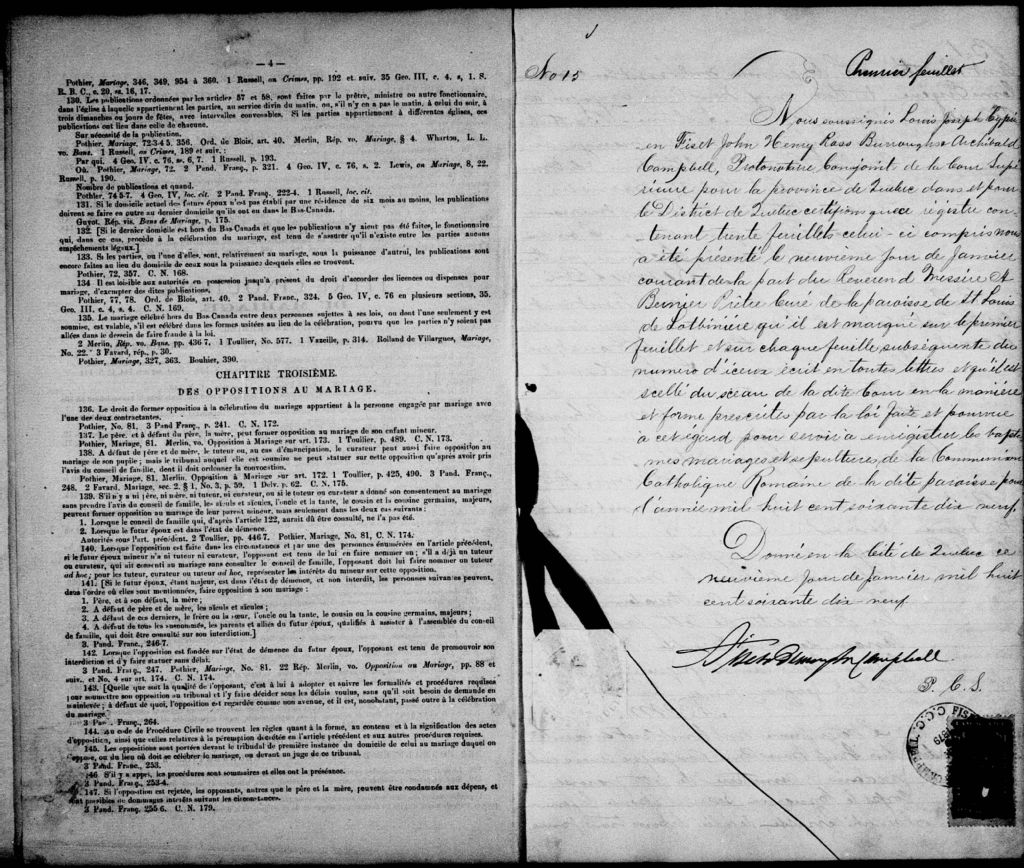 — 4 —
Pothier, Mariage, 346, 349, 954 à 360. 1 Russell, on Crimes, pp. 192 et suiv. 35 Geo. III, c. 4, s. 1. S.
R. B. C., c. 20, ss. 16, 17.
130. Les publications ordonnées par les articles 57 et 58, sont faites par le prêtre, ministre ou autre fonctionnaire,
dans l'église à laquelle appartiennent les parties, au service divin du matin, ou, s'il n'y en a pas le matin, à celui du soir, à
trois dimanches ou jours de fêtes, avec intervalles convenables. Si les parties appartiennent à différentes églises, ces
publications ont lieu dans celle de chacune.
Sur nécessité de la publication.
Pothier, Mariage, 72-3-4 5, 356. Ord. de Blois, art. 40. Merlin, Rép. vo. Mariage, § 4. Wharton, L. L.
vo. Bans. 1 Russell, on Crimes, 189 et suiv. :
Par qui. 4 Geo. IV. c. 76, ss. 6, 7. 1 Russell, p. 193.
Où. Pothier, Mariage, 72. 2 Pand. Franç., p. 321. 4 Geo. IV, c. 76, s. 2. Lewis, on Mariage, 8, 22.
Russell, p. 190.
Nombre de publications et quand.
Pothier, 74 5-7. 4 Geo. IV, loc. cit. 2 Pand. Franç. 222-4. 1 Russell, loc. cit.
131. Si le domicile actuel des futurs époux n'est pas établi par une résidence de six mois au moins, les publications
doivent se faire en outre au dernier domicile qu'ils ont eu dans le Bas-Canada.
Guyot. Rép. vis. Bans de Mariage, p. 175.
132. [Si le dernier domicile est hors du Bas-Canada et que les publications n'y aient pas été faites, le fonctionnaire
qui, dans ce cas, procède à la célébration du mariage, est tenu de s'assurer qu'il n'existe entre les parties aucuns
empêchements légaux.]
133. Si les parties, ou l'une d'elles, sont, relativement au mariage, sous la puissance d'autrui, les publications sont
encore faites au lieu du domicile de ceux sous la puissance desquels elles se trouvent.
Pothier, 72, 357. C. N. 168.
134 Il est loisible aux autorités en possession jusqu'à présent du droit d'accorder des licences ou dispenses pour
mariage, d'exempter des dites publications.
Pothier, 77, 78. Ord. de Blois, art. 40. 2 Pand. Franc., 324. 5 Geo. IV, c. 76 en plusieurs sections, 35.
Geo. III, c. 4, s. 4. C. N. 169.
135. Le mariage célébré hors du Bas-Canada entre deux personnes sujettes à ses lois, ou dont l'une seulement y est
soumise, est valable, s'il est célébré dans les formes usitées au lieu de la célébration, pourvu que les parties n'y soient pas
allées dans le dessein de faire fraude à la loi.
2 Merlin, Rép. vo. Bans. pp. 436 7. 1 Toullier, No. 577. 1 Vazeille, p. 314. Rolland de Villargues, Mariage,
No. 22. 3 Favard, rép., p. 30.
Pothier, Mariage, 327, 363. Bouhier, 390.
CHAPITRE TROISIÈME.
DES OPPOSITIONS AU MARIAGE.
136. Le droit de former opposition à la célébration du mariage appartient à la personne engagée par mariage avec
l'une des deux contractantes.
Pothier, No. 81, 3 Pand Franç., p. 241. C. N. 172.
137. Le père, et à défaut du père, la mère, peut former opposition au mariage de son enfant mineur.
Pothier, Mariage, 81. Merlin, vo. Opposition à Mariage sur art. 173. 1 Toullier, p. 489. C. N. 173.
138. A défaut de père et de mère, le tuteur ou, au cas d'émancipation, le curateur peut aussi faire opposition au
mariage de son pupille ; mais le tribunal auquel elle est soumise ne peut statuer sur cette opposition qu'après avoir pris
l'avis du conseil de famille, dont il doit ordonner la convocation.
Pothier, Mariage, 81. Merlin, Opposition à Mariage sur art. 172. 1 Toullier, p. 425, 490. 3 Pand. Franç.,
248. 2 Favard. Mariage, sec. 2. § 1, No. 3, p. 59. 1 Delv. p. 62. C. N. 175.
139. S'il n'y a ni père, ni mère, ni tuteur, ni curateur, ou si le tuteur ou curateur a donné son consentement au mariage
sans prendre l'avis du conseil de famille, les aïeuls et aïeules, l'oncle et la tante, le cousin et la cousine germains, majeurs,
peuvent former opposition au mariage de leur parent mineur, mais seulement dans les deux cas suivants :
1. Lorsque le conseil de famille qui, d'après l'article 122, aurait dû être consulté, ne l'a pas été.
2. Lorsque le futur époux est dans l'état de démence.
Autorités sous l'art. précédent. 2 Toullier, pp. 446 7. Pothier, Mariage, No. 81, C. N. 174.
140. Lorsque l'opposition est faite dans les circonstances et par une des personnes énumérées en l'article précédent,
si le futur époux mineur n'a ni tuteur ni curateur, l'opposant est tenu de lui en faire nommer un ; s'il a déjà un tuteur
ou curateur, qui ait consenti au mariage sans consulter le conseil de famille, l'opposant doit lui faire nommer un tuteur
ad hoc ; pour les tuteur, curateur ou tuteur ad hoc, représenter les intérêts du mineur sur cette opposition.
141. [Si le futur époux, étant majeur, est dans l'état de démence, et non interdit, les personnes suivantes peuvent,
dans l'ordre où elles sont mentionnées, faire opposition à son mariage :
1. Père, et à son défaut, la mère ;
2. A défaut de père et de mère, les aïeuls et aïeules ;
3. A défaut de ces derniers, le frère ou la sœur, l'oncle ou la tante, le cousin ou la cousine germains, majeurs ;
4. A défaut de tous les susnommés, les parents et alliés du futur époux, qualifiés à assister à l'assemblée du conseil
de famille, qui doit être consulté sur son interdiction.]
3. Pand. Franc., 246-7.
142. Lorsque l'opposition est fondée sur l'état de démence du futur époux, l'opposant est tenu de promouvoir son
interdiction et d'y faire statuer sans délai.
3 Pand. Franç. 247. Pothier, Mariage, No. 81. 22 Rép. Merlin, vo. Opposition au Mariage, pp. 88 et
suiv., et No. 4 sur art. 174. C. N. 174.
143. [Quelle que soit la qualité de l'opposant, c'est à lui à adopter et suivre les formalités et procédures requises
pour soumettre son opposition au tribunal et l'y faire décider sous les délais voulus, sans qu'il soit besoin de demande en
mainlevée ; à défaut de quoi, l'opposition est regardée comme non avenue, et il est, nonobstant, passé outre à la célébration
du mariage.]
3 Pand. Franç., 264.
144. Au code de Procédure Civile se trouvent les règles quant à la forme, au contenu et à la signification des actes
d'opposition, ainsi que celles relatives à la péremption décrétée en l'article précédent et aux autres procédures requises.
145. Les oppositions sont portées devant le tribunal de première instance du domicile de celui au mariage duquel on
s'oppose, ou du lieu où doit se célébrer le mariage, ou devant un juge de ce tribunal.
3 Pand. Franc., 253.
146 S'il y a appel, les procédures sont sommaires et elles ont la préséance.
3 Pand. Franç., 253-4.
147. Si l'opposition est rejetée, les opposants, autres que le père et la mère, peuvent être condamnés aux dépens, et
sont passibles de dommages intérêts suivant les circonstances.
3 Pand. Franç. 255-6. C. N. 179.
No 15
Premier feuillet
Nous soussignés Louis Joseph Cypri-
en Fiset John Henry Ross Burroughs & Archibald
Campbell, Protonotaire Conjoint de la Cour Supé
rieure pour la province de Québec dans et pour
le District de Québec certifions que ce régistre con-
tenant trente feuillets celui-ci compris nous
a été présenté le neuvième jour de Janvier
courant de la part du Révérend Messire A
Bernier Prêtre Curé de la paroisse de St Louis
de Lotbinière qu'il est marqué sur le premier
feuillet et sur chaque feuille subséquente du
numero d'iceux écrit en toutes lettres et qu'il est
scellé du sceau de la dite Cour en la manière
et forme prescrites par la loi faite et pourvue
à cet égard pour servir à enrégistrer les baptê
mes mariages et sépultures de la Communion
Catholique Romaine de la dite paroisse pour
l'année mil huit cent soixante dix neuf.
Donné en la Cité de Québec ce
neuvième jour de Janvier mil huit
cent soixante dix-neuf.
Fiset Burroughs Campbell
P. C. S.